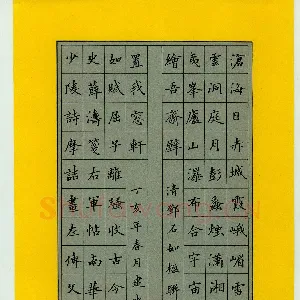 滄海日赤城霞峨嵋雪
雲洞庭月彭蠡煙瀟湘
夷峯廬山瀑布合宇宙
繪吾齋壁
清鄧石如楹聯
少陵詩摩詰畫左傳文
史薛濤箋右軍帖南華
如賦屈子離騷收古今
置我窗軒
丁亥年春月建